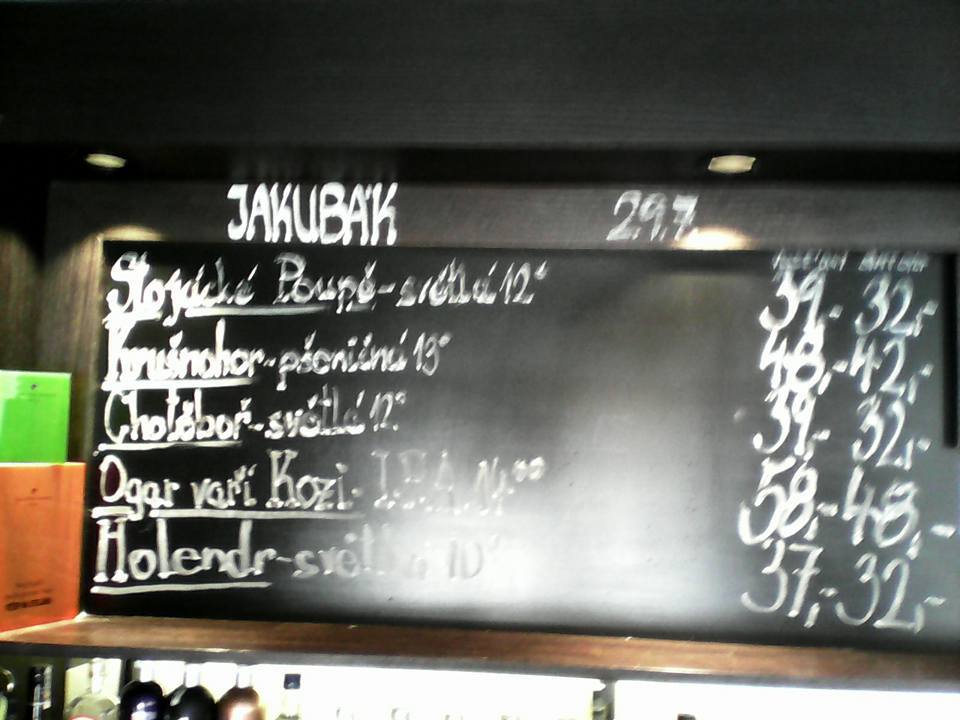 JAKUBÁK 29.7.
Slojické Poupě-světlé 12° 39,- 32,-
Krušnohor-pšeničné 13° 48,- 42,-
Chotěboř-světlé 12° 39,- 32,-
Ogar vaří Kozi- I.P.A. 14°° 58,- 48,-
Holendr-světlé 10° 37,- 32,-